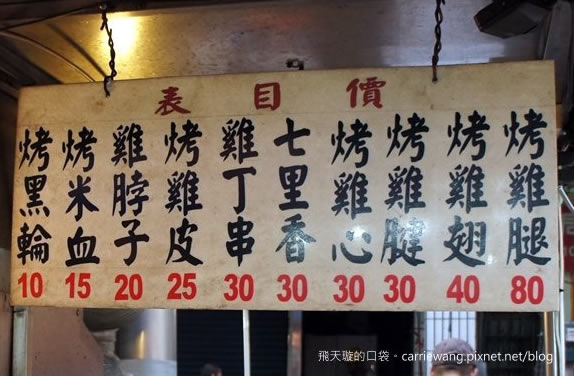 價目表
烤雞腿 80
烤雞翅 40
烤雞腱 30
烤雞心 30
七里香 30
雞丁串 30
烤雞皮 25
雞脖子 20
烤米血 15
烤黑輪 10
飛天璇的口袋。carriewang.pixnet.net/blog